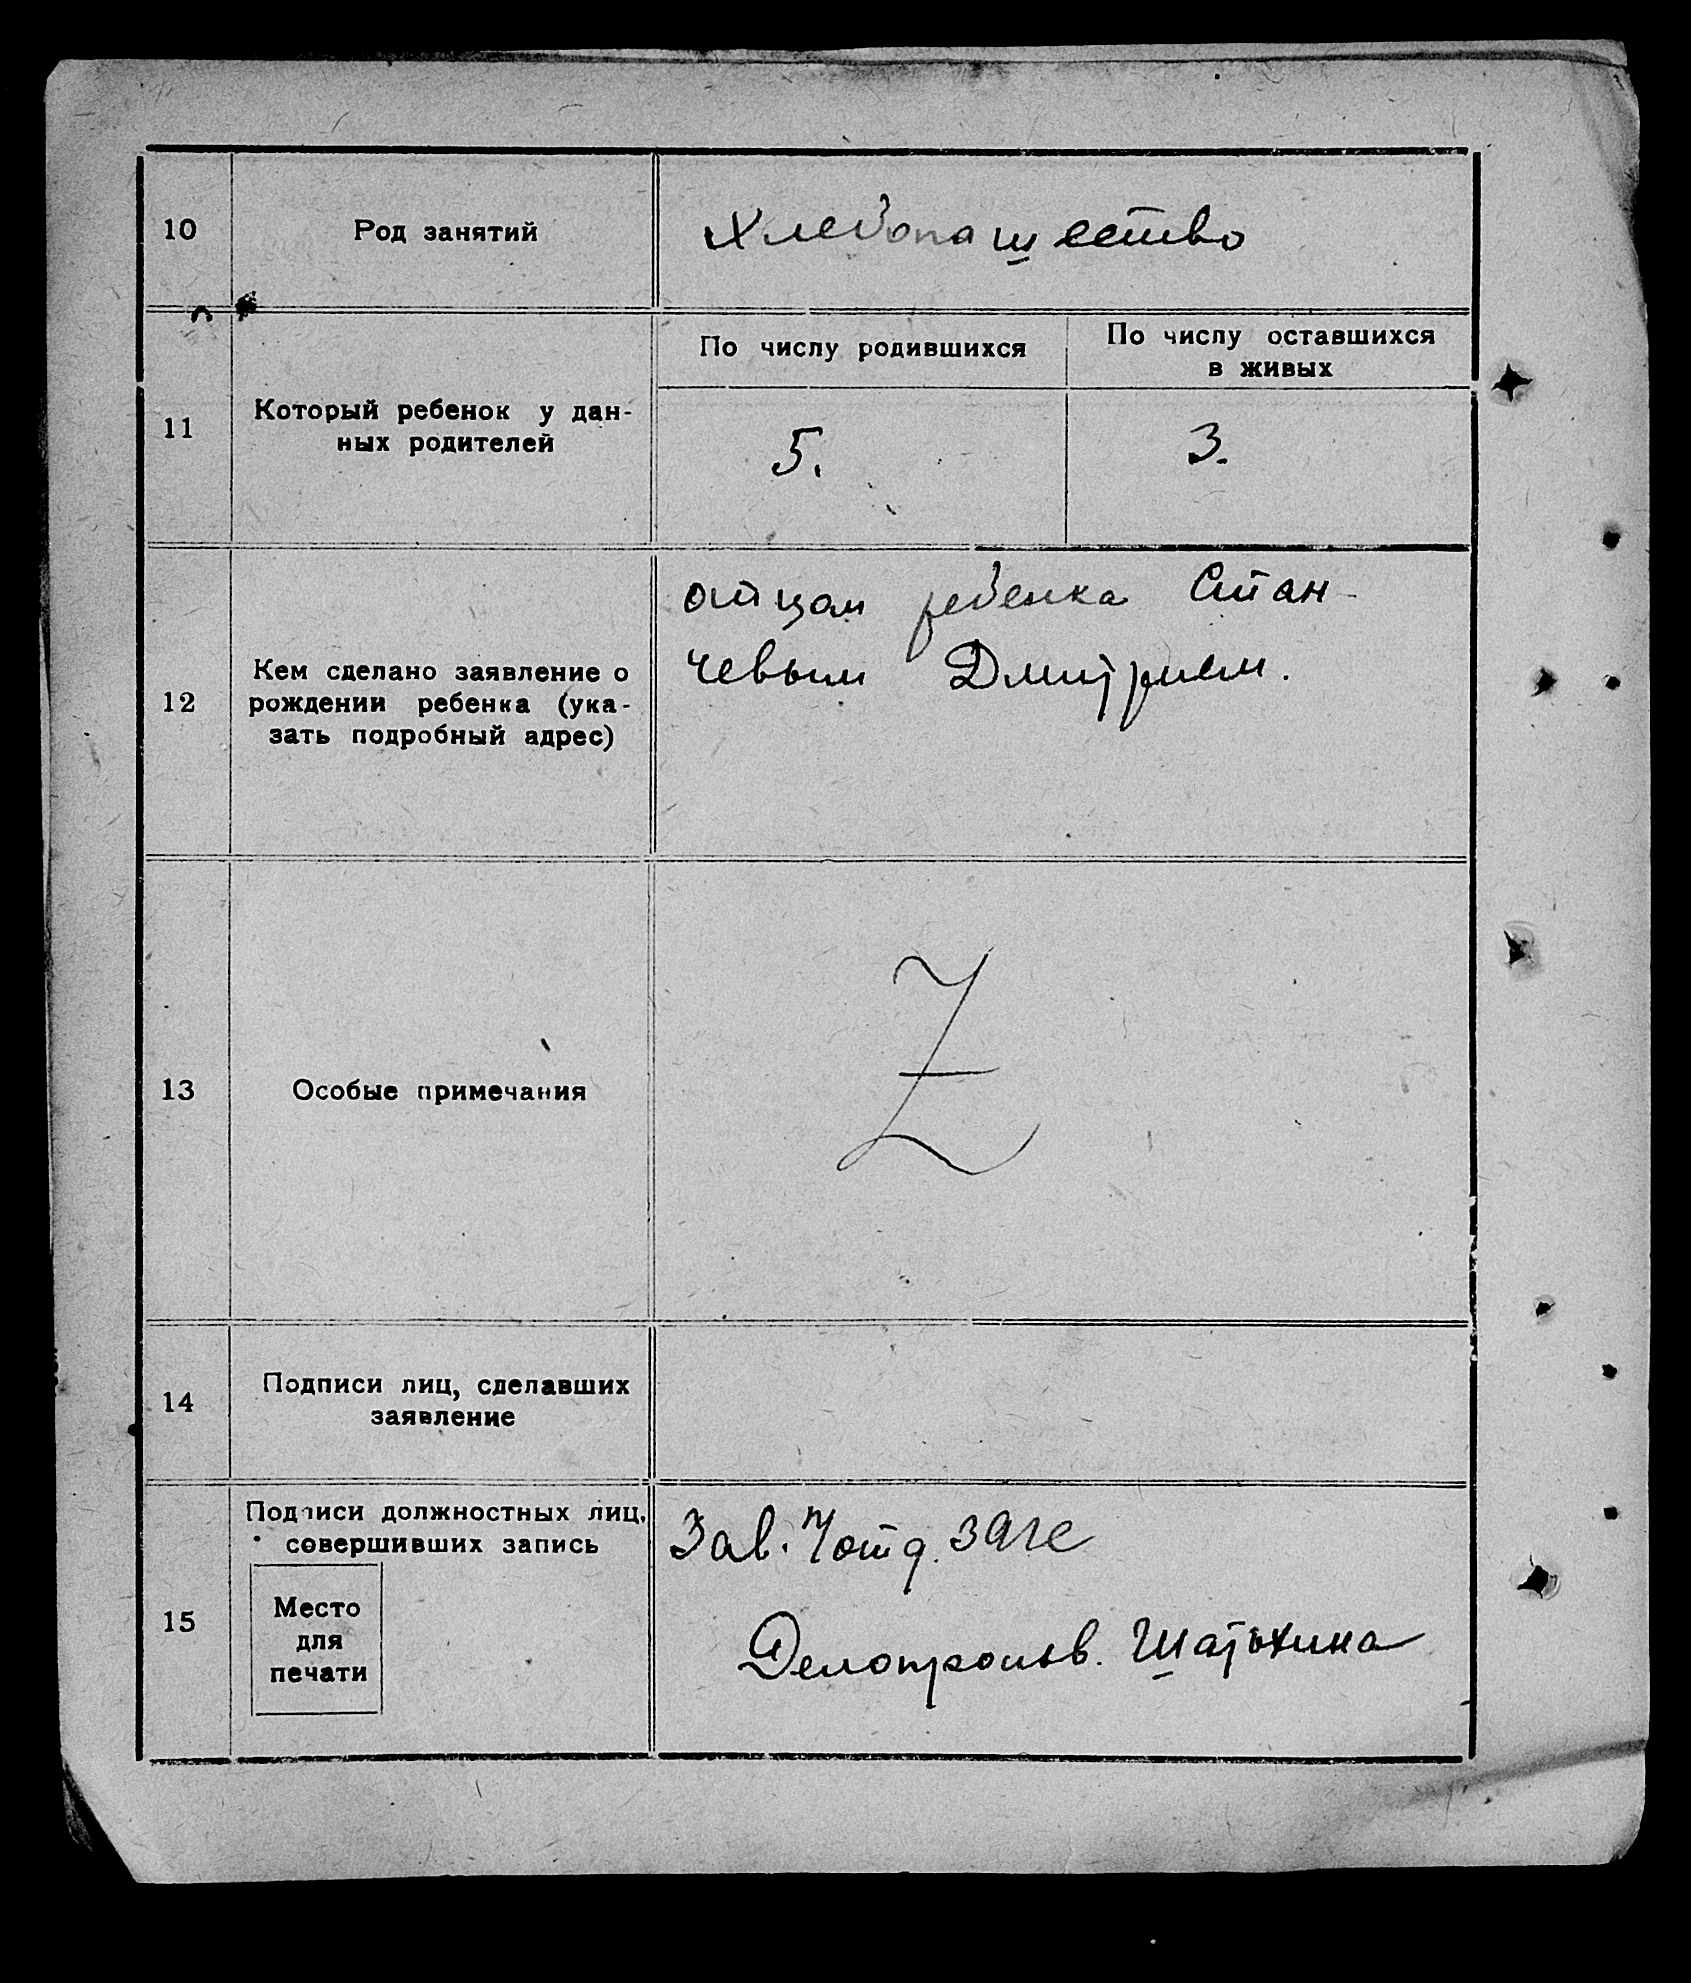 10
Род занятий
Хлебопашество
11
Который ребенок у дан-
ных родителей
По числу родившихся
По числу оставшихся
в живых
5.
3.
12
Кем сделано заявление о
рождении ребенка (ука-
зать подробный адрес)
отцом ребенка Стан-
чевым Дмитрием.
13
Особые примечания
Z
14
Подписи лиц, сделавших
заявление
15
Подписи должностных лиц,
совершивших запись
Место
для
печати
Зав.
Делопроизв. Шатохина